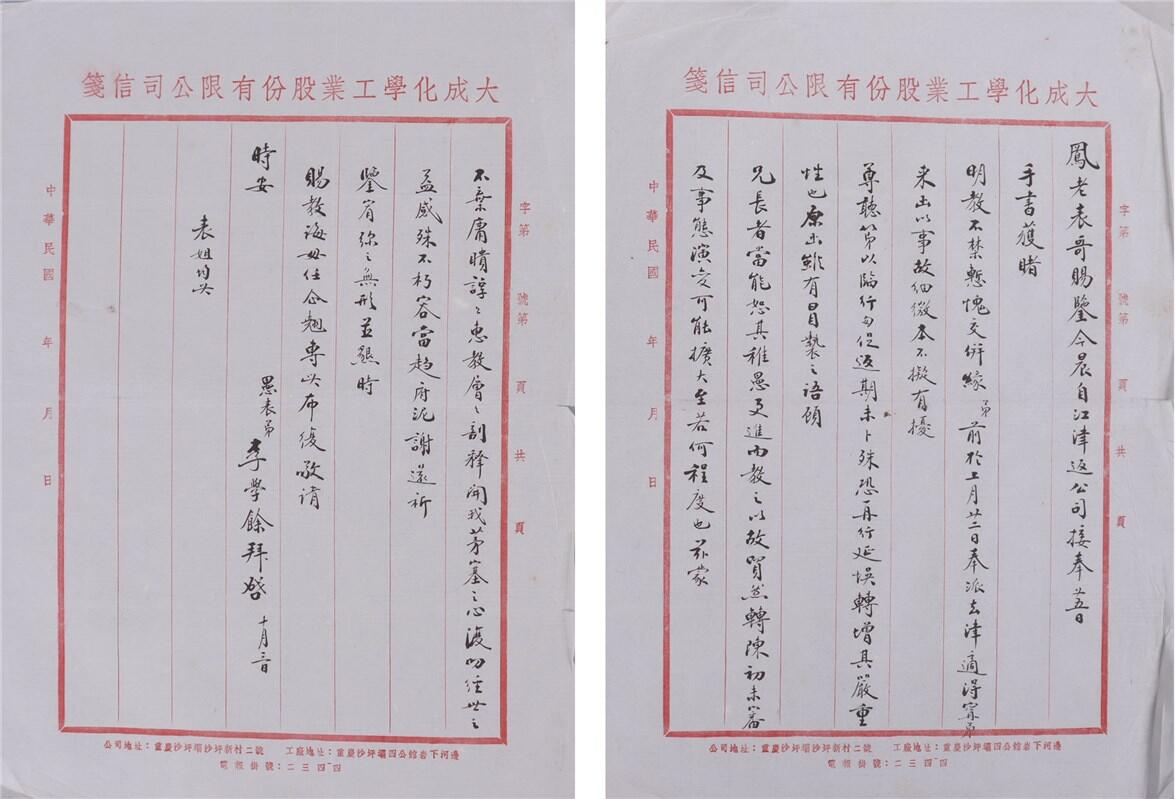 大成化學工業股份有限公司信箋
字第 號第 頁 共 頁
鳳老表哥賜鑒今晨自江津返公司接奉廿五日
手書獲睹
明教不禁慙愧交併緣弟前於上月廿二日奉派去津適得甯弟
來出以事故細微本不擬有擾
尊聽第以臨行匆促返期未卜殊恐再行延悞轉增其嚴重
性也原出雖有冒褻之語傾
兄長者當能恕其稚愚更進而教之以故貿然轉陳初未審
及事態演变可能擴大至若何程度也茲蒙
中華民國 年 月 日
公司地址：重慶沙坪壩沙坪新村二號 工廠地址：重慶沙坪壩四公館岩下河邊
電報掛號：二三四四
大成化學工業股份有限公司信箋
字第 號第 頁 共 頁
不棄庸聵諄々忠教層々剖釋開我茅塞之心濩叨經世之
益感殊不朽容當趋府泥謝還祈
鑒宥弥之無形並懇時
賜教誨毋任企翹專此布復敬請
時安
愚表弟李學餘拜啓 十月三日
表姐均此
中華民國 年 月 日
公司地址：重慶沙坪壩沙坪新村二號 工廠地址：重慶沙坪壩四公館岩下河邊
電報掛號：二三四四